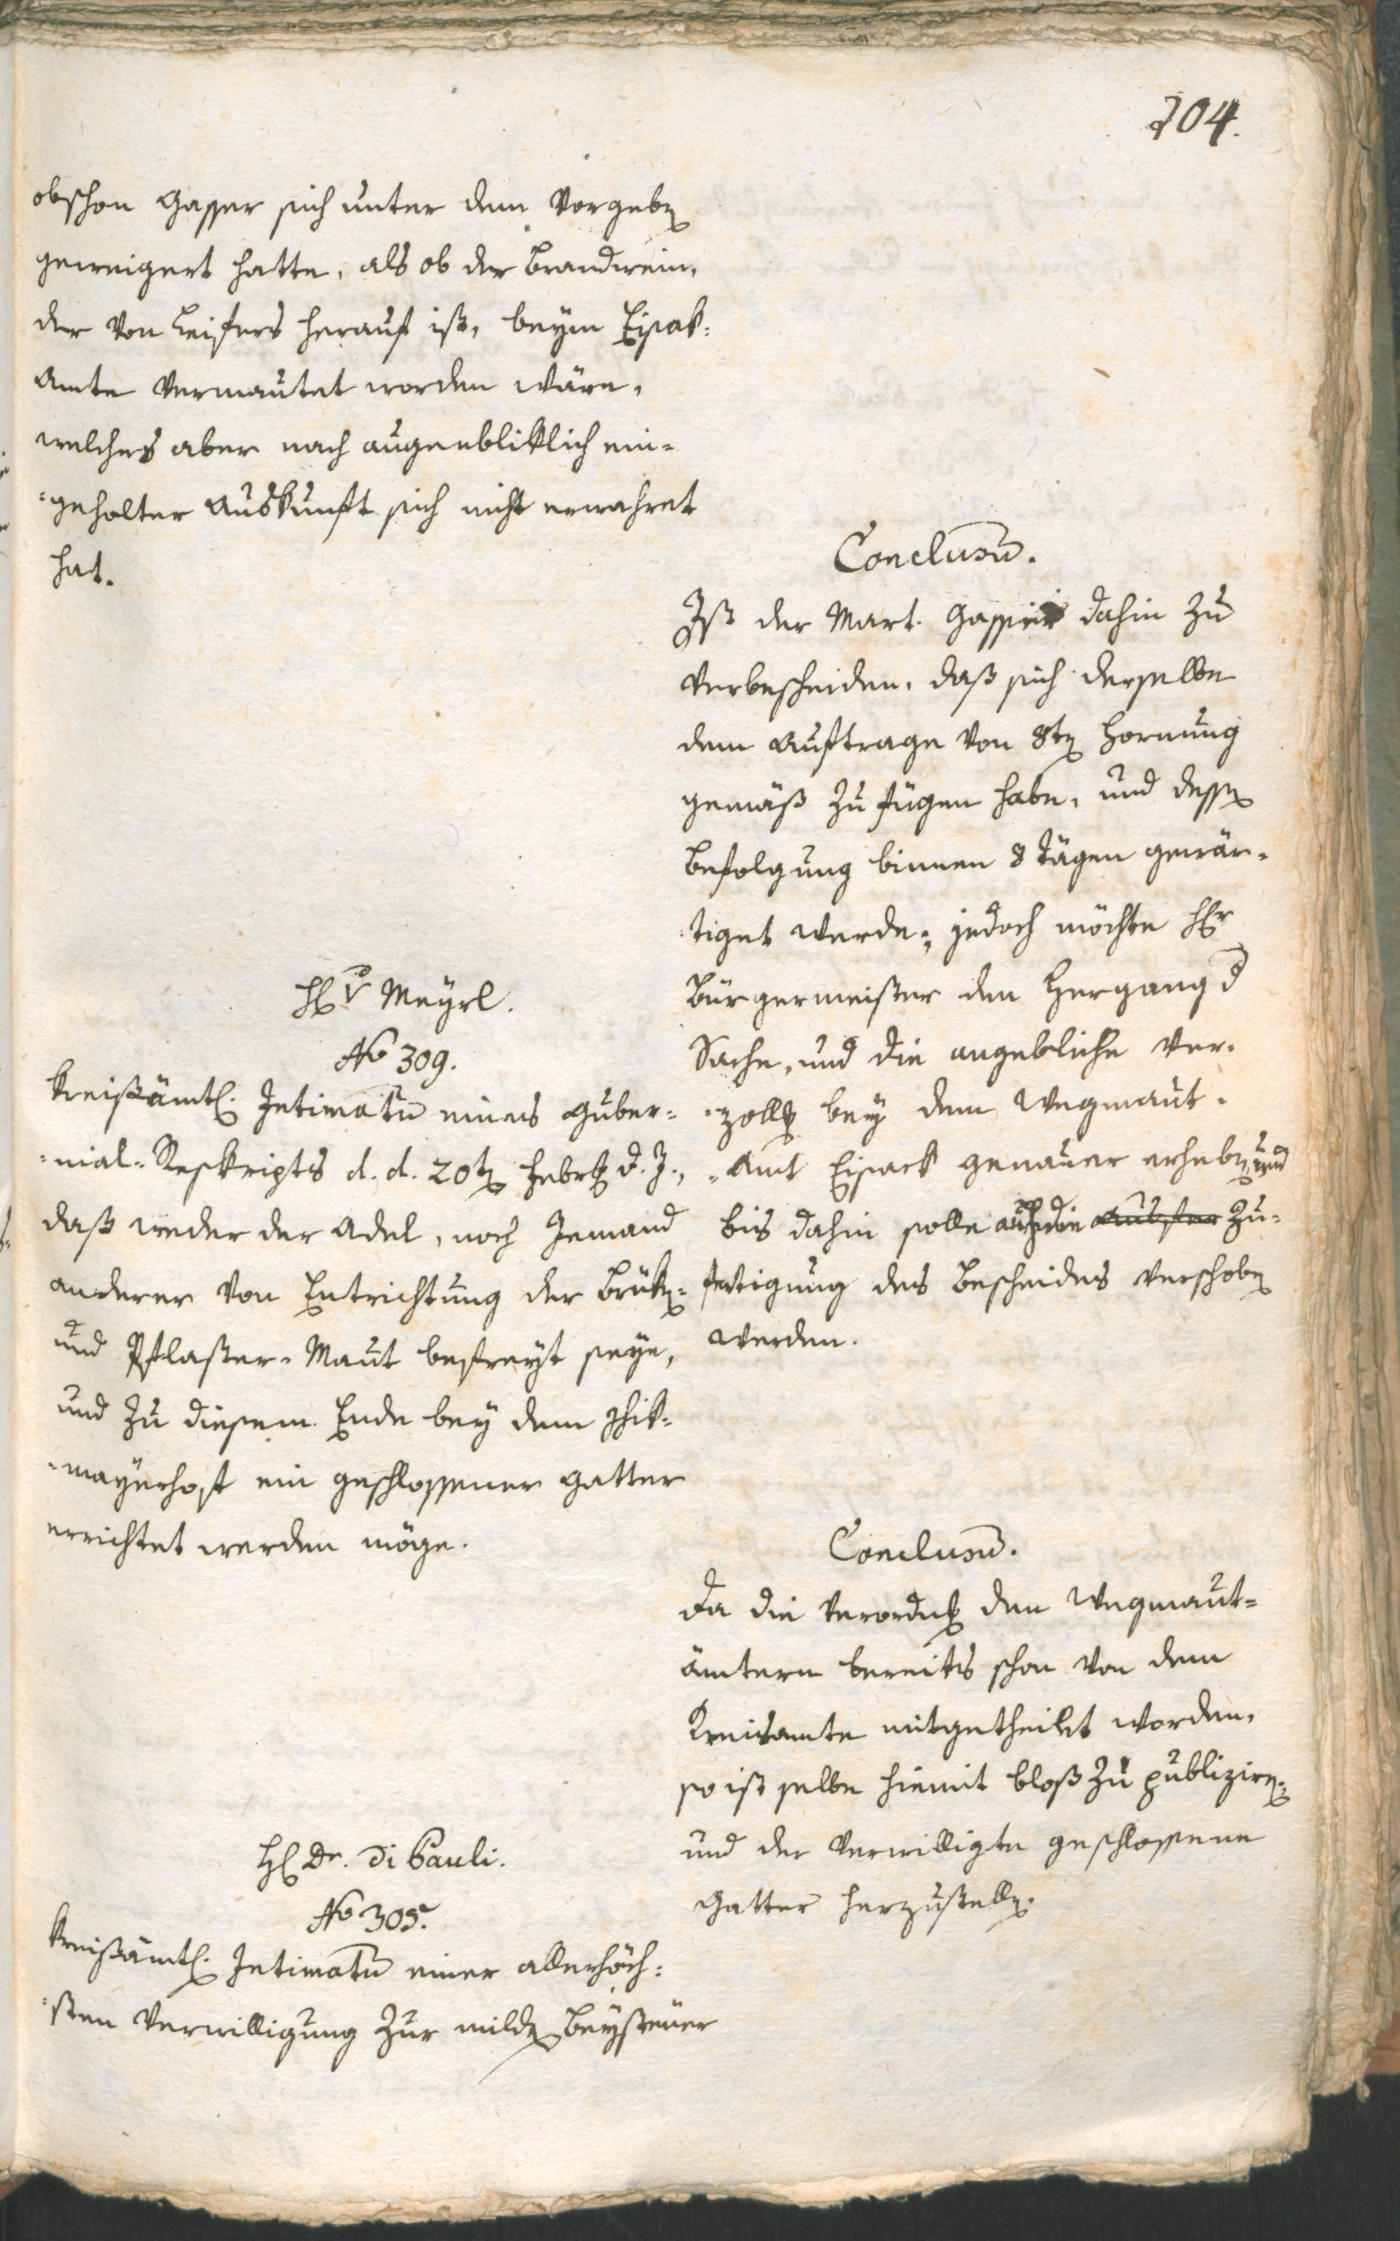 104.
obschon Gasser sich unter dem Vorgeben
geweigert hatte, als ob der Brandwein,
der von Leifers herauf ist, beym Eisak-
Amte vermautet worden wäre,
welches aber nach augenbliklich ein-
-geholter Auskunft sich nicht erwahret
hat.
Conclusum.
Ist der Mart. Gasser dahin zu
verbescheiden, daß sich derselbe
dem Auftrage von 8ten Hornung
gemäß zu fügen habe, und dessen
Befolgung binnen 8 Tägen gewär-
tiget werde; jedoch möchte Hr
Bürgermeister den Hergang d
Sache, und die angebliche Ver-
-zollg bey dem Wegmaut-
-Amt Eisack genauer erheben, und
bis dahin solle auch die Zu-
fertigung des Bescheides verschoben
werden.
H v Meyrl.
No 309.
Kreißämtl. Intimatum eines Guber-
-nial-Reskripts d. d. 20ten Febr d. J.,
daß weder der Adel, noch Jemand
anderer von Entrichtung der Brüken-
und Pflaster-Maut befreyt seye,
und zu diesem Ende bey dem
-mayrhoft ein geschlossener Gatter
errichtet werden möge.
Conclusum.
Da die Verordng den Wegmaut-
ämtern bereits schon von dem
Kreisamte mitgetheilt worden,
so ist selbe hiemit bloß zu publiziren,
und der verwilligte geschlossene
Gatter herzustellen.
H Dr. Di Pauli.
No 305.
Kreißämtl. Intimatum einer allerhöch-
-sten Verwilligung zur milden Beysteuer